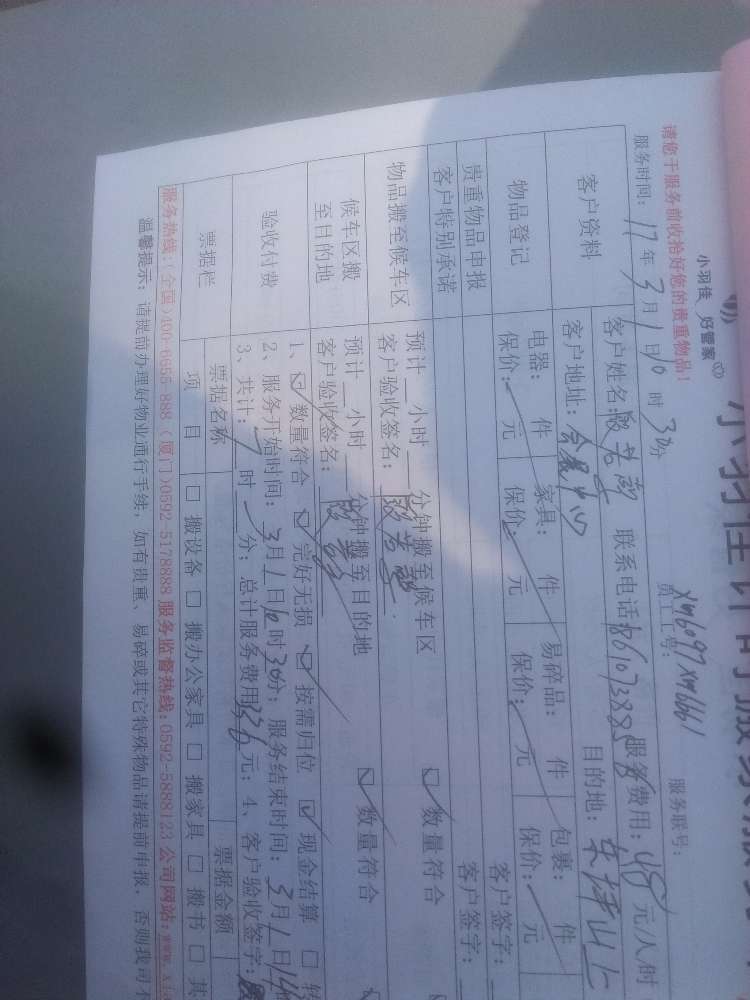 小羽佳 好管家
请您于服务前收拾好您的贵重物品!
员工工号: xm6097 xm6661 服务联号:
服务时间: 17年3月1日10时30分
服务费用: 48元/人时
客户资料 客户姓名: 联系电话:
客户地址: 会展中心 目的地: 东坪山上
物品登记 电器: 件 家具: 件 易碎品: 件 包裹: 件
保价: 元 保价: 元 保价: 元 保价: 元
贵重物品申报 客户签字:
客户特别承诺 客户签字:
物品搬至候车区 预计 小时 分钟搬至候车区 数量符合
客户验收签名:
候车区搬至目的地 预计 小时 分钟搬至目的地 数量符合
客户验收签名:
验收付费 1、 数量符合 完好无损 按需归位 现金结算
2、服务开始时间: 3月1日10时30分; 服务结束时间: 3月1日14
3、共计: 7时 分; 总计服务费用336元; 4、客户验收签字:
票据栏 票据名称 票据金额
项 目 □ 搬设备 □ 搬办公家具 □ 搬家具 □ 搬书 □ 其
服务热线:(全国)400-6555-888 (厦门)0592-5178888 服务监督热线:0592-5888123 公司网站:www.xi
温馨提示: 请提前办理好物业通行手续, 如有贵重、易碎或其它特殊物品请提前申报, 否则我司不